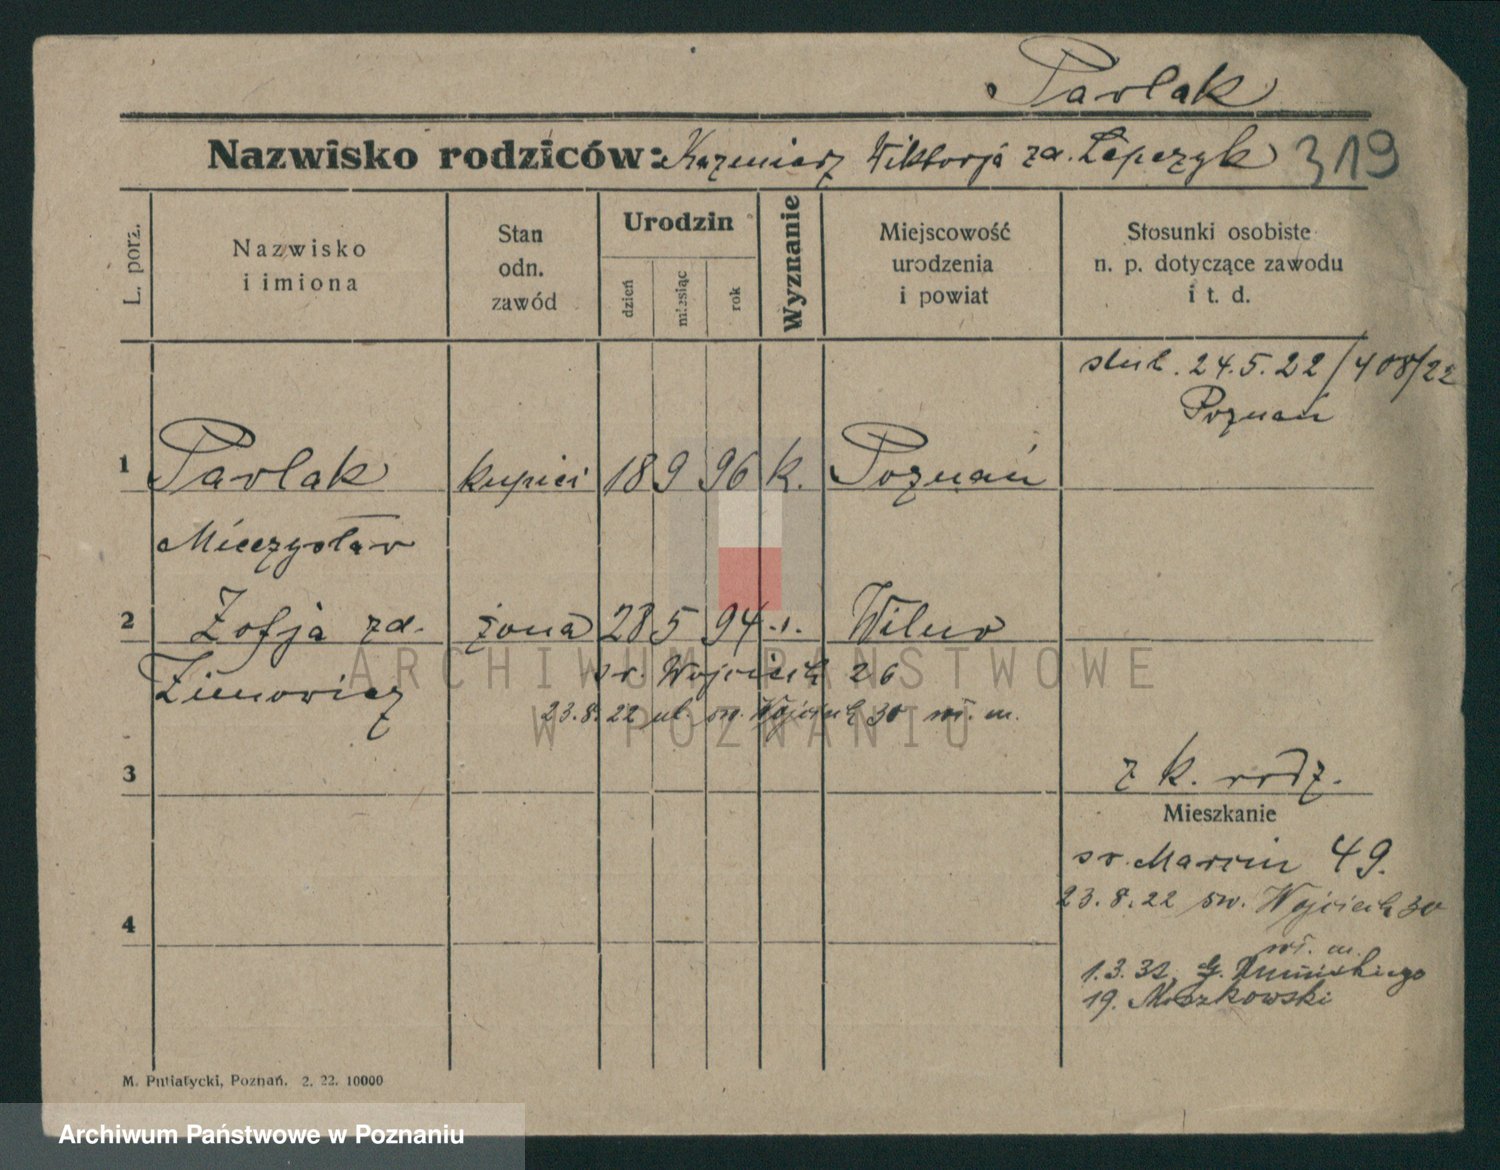 Pavlak
Nazwisko rodziców: Kazmierz Wiktorja zd. Łapczyk 319
L. porz.
Nazwisko
i imiona
Stan
odn.
zawód
Urodzin
dzień
miesiąc
rok
Wyznanie
Miejscowość
urodzenia
i powiat
Stosunki osobiste
n. p. dotyczące zawodu
i t. d.
slub. 24.5.22/408/22
Poznań
1 Pavlak kupiec 18 9 96 k. Poznań
Mieczysław
2 Zofja zd. żona 28 5 94 Wilno
Zimowicz
sv. Wojciech 26
23.8.22 ul. sw. Wojciech 30 wł. m.
3
z k. rodz.
Mieszkanie
sv. Marcin 49.
23.8.22 sw. Wojciech 30
wł. m.
1.3.32
19. Moszkowski
4
M. Putiatycki, Poznań. 2. 22. 10000
ARCHIWUM PAŃSTWOWE
W POZNANIU
Archiwum Państwowe w Poznaniu